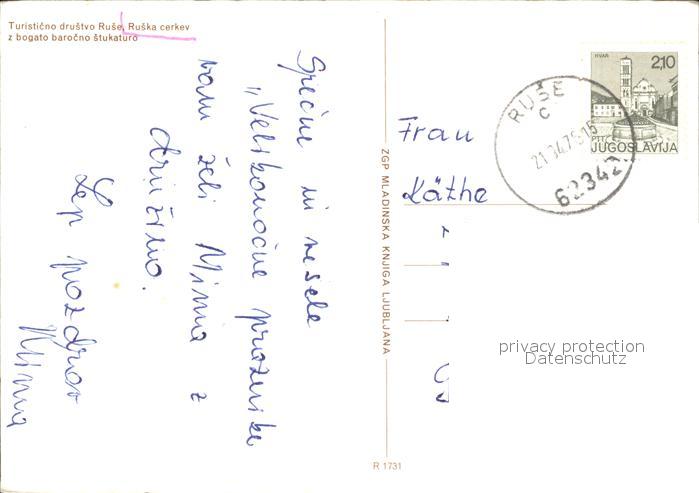 Turistično društvo Ruše, Ruška cerkev
z bogato baročno štukaturo
Srečne in vesele
„Velikonočne praznike
vam želi Mimia z
družino.
Lep pozdrav
Mimia
ZGP MLADINSKA KNJIGA LJUBLJANA
R 1731
HVAR
2,10
PTT JUGOSLAVIJA
RUŠE
C
62342
Frau
Käthe
privacy protection
Datenschutz